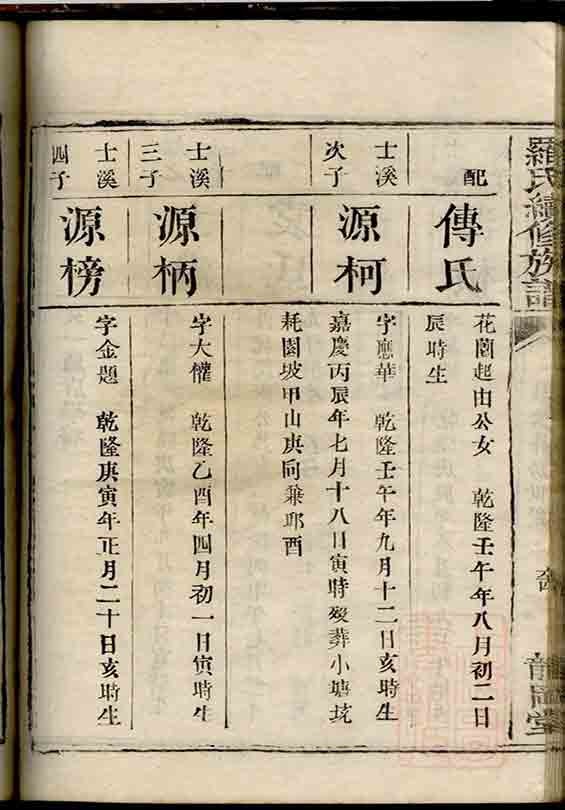 羅氏續修族譜
龍岡堂
配
傅氏
花園起由公女 乾隆壬午年八月初二日
辰時生
士溪
次子
源柯
字應華 乾隆壬午年九月十二日亥時生
嘉慶丙辰年七月十八日寅時歿葬小塘坑
耗園坡甲山庚向兼卯酉
士溪
三子
源柄
字大權 乾隆乙酉年四月初一日寅時生
士溪
四子
源榜
字金題 乾隆庚寅年正月二十日亥時生